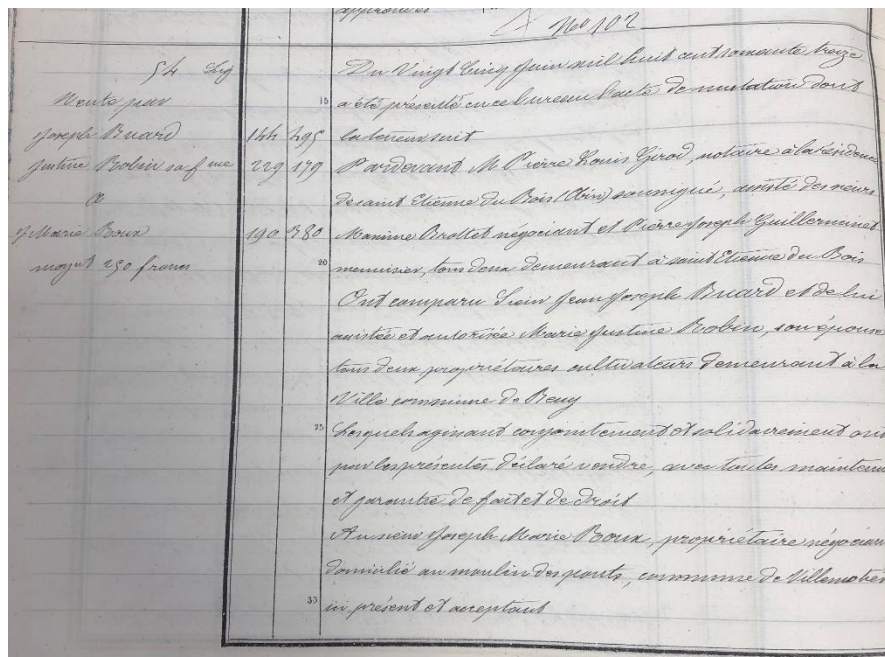 No 102
54
Vente par
Joseph Buard
Justine Robin sa fme
a
J Marie Roux
moyent 250 francs
144 495
229 179
190 380
Du Vingt Cinq Juin mil huit cent soixante treize
15 a été présenté en ce bureau l'acte de mutation dont
la teneur suit
Pardevant M Pierre Louis Girod, notaire à la résidence
de saint Etienne Du Bois (Ain) soussigné, assisté des sieurs
Maxime Brottet négociant et Pierre Joseph Guillerminet
20 menuisier, tous deux demeurant à saint Etienne du Bois
Ont comparu Sieur Jean Joseph Buard et de lui
assistée et autorisée Marie Justine Robin, son épouse
tous deux propriétaires cultivateurs demeurant à la
Ville commune de
25 Lesquels agissant conjointement et solidairement ont
par les présentes déclaré vendre, avec toutes maintenue
et garantie de fait et de droit
Au sieur Joseph Marie Roux, propriétaire négociant
domicilié au moulin des ponts, commune de Villemotier
ici présent et acceptant